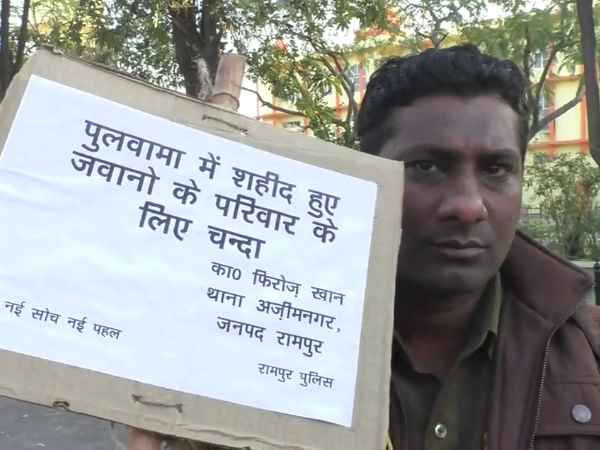 पुलवामा में शहीद हुए
जवानो के परिवार के
लिए चन्दा
का0 फिरोज़ खान
थाना अज़ीमनगर,
जनपद रामपुर
नई सोच नई पहल
रामपुर पुलिस